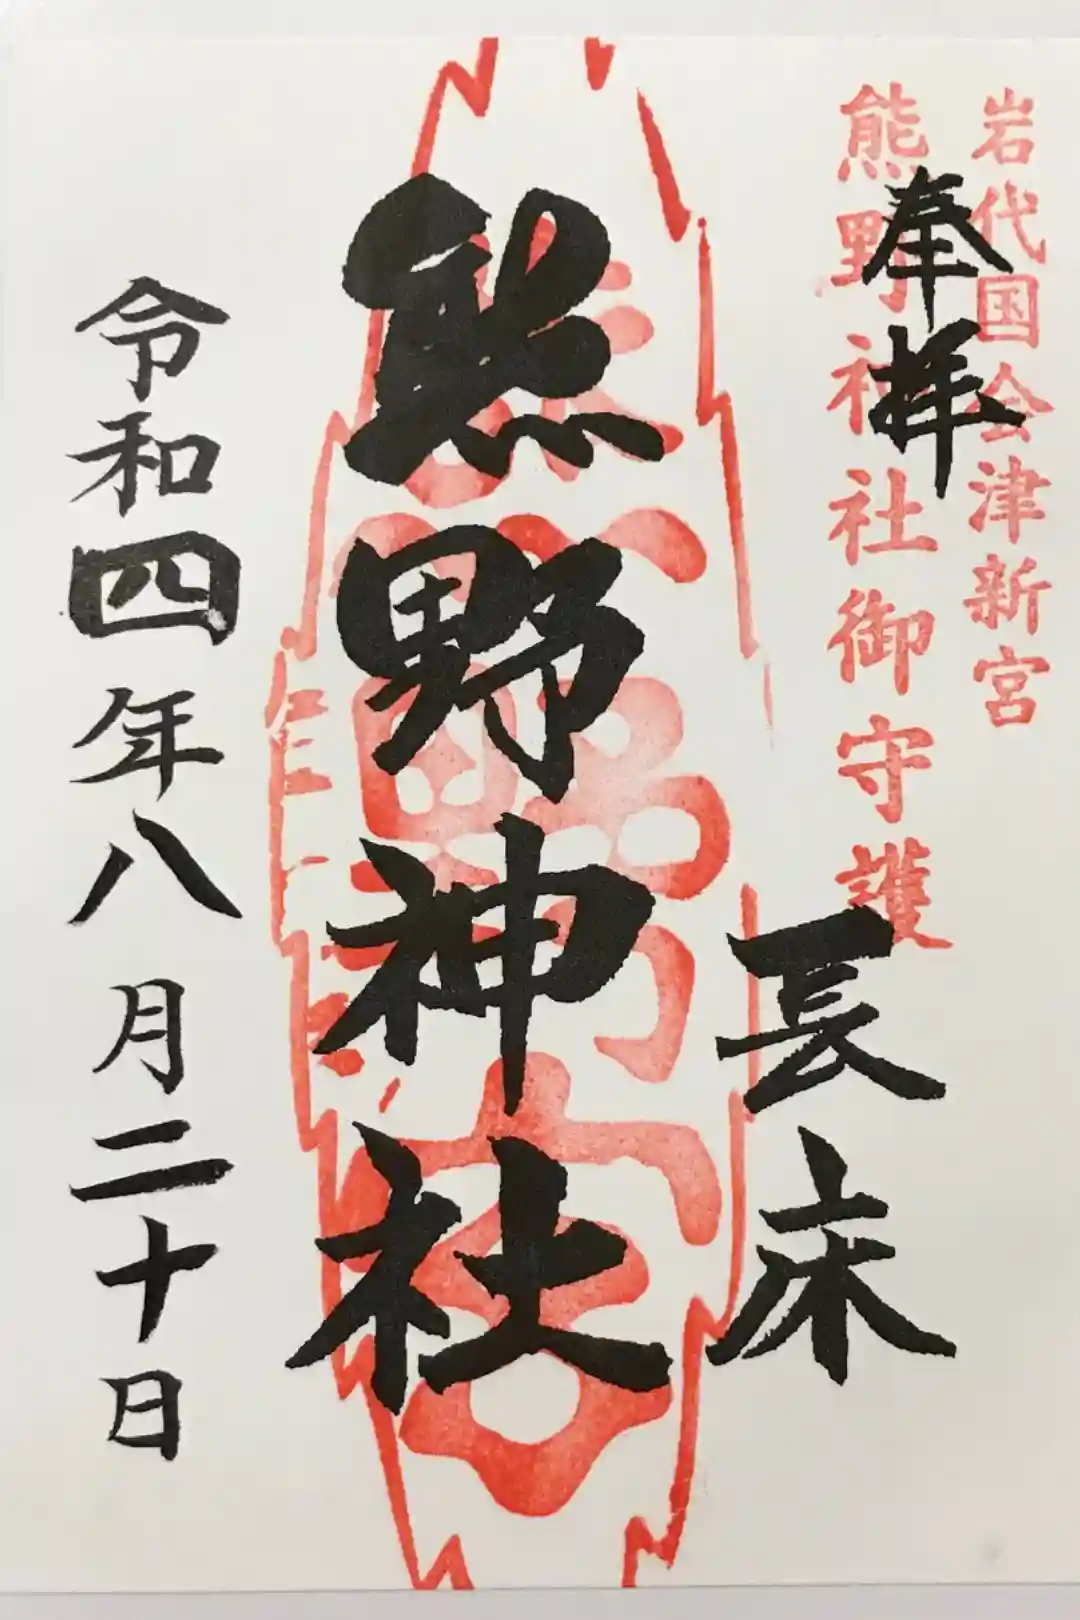 岩代国会津新宮
熊野神社社御守護
奉拝
長床
熊野神社
令和四年八月二十日